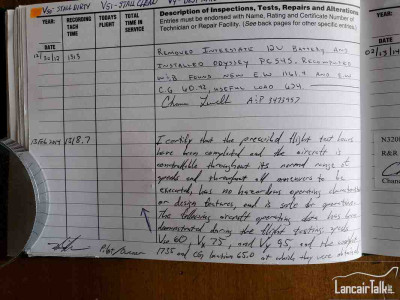 Vso- STALL DIRTY VS1- STALL CLEAN
YEAR:
DATE
RECORDING TACH TIME
TODAYS FLIGHT
TOTAL TIME IN SERVICE
Description of Inspections, Tests, Repairs and Alterations
Entries must be endorsed with Name, Rating and Certificate Number of
Technician or Repair Facility. (See back pages for other specific entries.)
REMOVED INTERSTATE 12V BATTERY AND
INSTALLED ODYSSEY PC545. RECOMPUTED
W&B FOUND NEW EW
CG 60.42, USEFUL LOAD 634
A&P
13 FEB 2014 1318.7
I certify that the prescribed flight test hours
have been completed and the aircraft is
controllable throughout its normal range of
speeds and throughout all maneuvers to be
executed, has no hazardous operating characteristics
or design features, and is safe for operation.
The following aircraft operating data has been
demonstrated during the flight testing: speeds
Vso 60, Vx 75, and Vy 95, and the weight
1735 and CG location 65.0 at which they were obtained
YEAR:
DATE
N320
R&R
LancairTalk